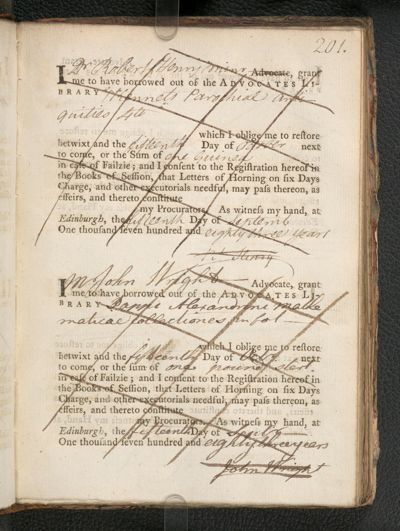 201.
I Dr Robert Henry Minr Advocate, grant
me to have borrowed out of the ADVOCATES LI-
BRARY Kennets Parochial Anti-
quities 4to
which I oblige me to restore
betwixt and the fifteenth Day of October next
to come, or the Sum of one Guinea
in case of Failzie; and I consent to the Registration hereof in
the Books of Session, that Letters of Horning on six Days
Charge, and other executorials needful, may pass thereon, as
effeirs, and thereto constitute
my Procurators. As witness my hand, at
Edinburgh, the fifteenth Day of Septemb
One thousand seven hundred and eighty three years
Henry
I Mr John Wright Advocate, grant
me to have borrowed out of the ADVOCATES LI-
BRARY Pappi Alexandrini mathe
maticae Collectiones in fol
which I oblige me to restore
betwixt and the fifteenth Day of next
to come, or the sum of one pound sterl.
in case of Failzie; and I consent to the Registration hereof in
the Books of Session, that Letters of Horning on six Days
Charge, and other executorials needful, may pass thereon, as
effeirs, and thereto constitute
my Procurators. As witness my hand, at
Edinburgh, the fifteenth Day of
One thousand seven hundred and eighty three years
John Wright